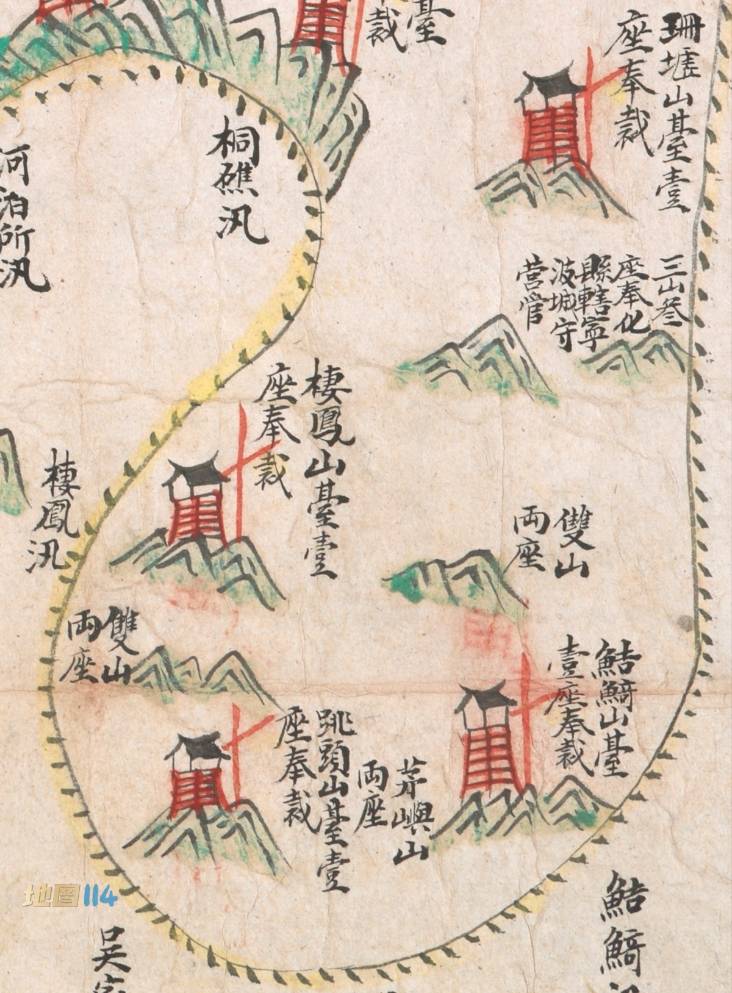 珊墟山臺壹
座奉裁
臺
裁
桐礁汛
河泊所汛
三山叁
座奉化
縣轄寧
波城守
营管
棲鳳山臺壹
座奉裁
棲鳳汛
雙山
両座
雙山
両座
鮚鰭山臺
壹座奉裁
跳頭山臺壹
座奉裁
茅嶼山
両座
鮚鰭
吴
地圖114